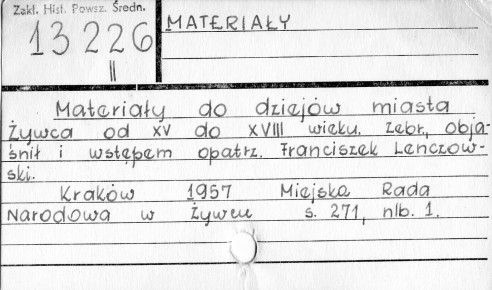 Zakł. Hist. Powsz. Średn.
13 226
II
MATERIAŁY
Materiały do dziejów miasta
Żywca od XV do XVIII wieku. Zebr., obja-
śnił i wstępem opatrz. Franciszek Lenczow-
ski.
Kraków 1957 Miejska Rada
Narodowa w Żywcu s. 271, nlb. 1.